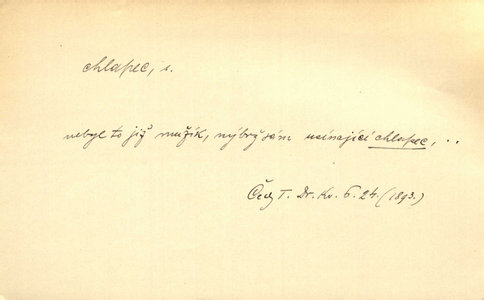 chlapec, s.
nebyl to již mužík, nýbrž sám usínající chlapec, ..
Čech T. Dr. Kv. 6. 24. (1893.)